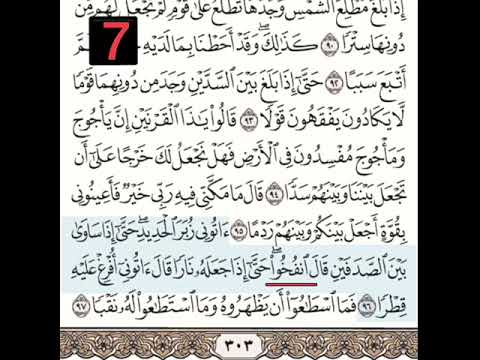 إِذَا بَلَغَ مَطْلِعَ ٱلشَّمْسِ وَجَدَهَا تَطْلُعُ عَلَىٰ قَوْمٍ لَّمْ نَجْعَل لَّهُم مِّن
7
دُونِهَا سِتْرًا ٩٠ كَذَٰلِكَۖ وَقَدْ أَحَطْنَا بِمَا لَدَيْهِ
أَتْبَعَ سَبَبًا ٩٢ حَتَّىٰٓ إِذَا بَلَغَ بَيْنَ ٱلسَّدَّيْنِ وَجَدَ مِن دُونِهِمَا قَوْمًا
لَّا يَكَادُونَ يَفْقَهُونَ قَوْلًا ٩٣ قَالُوا۟ يَٰذَا ٱلْقَرْنَيْنِ إِنَّ يَأْجُوجَ
وَمَأْجُوجَ مُفْسِدُونَ فِى ٱلْأَرْضِ فَهَلْ نَجْعَلُ لَكَ خَرْجًا عَلَىٰٓ أَن
تَجْعَلَ بَيْنَنَا وَبَيْنَهُمْ سَدًّا ٩٤ قَالَ مَا مَكَّنِّى فِيهِ رَبِّى خَيْرٌ فَأَعِينُونِى
بِقُوَّةٍ أَجْعَلْ بَيْنَكُمْ وَبَيْنَهُمْ رَدْمًا ٩٥ ءَاتُونِى زُبَرَ ٱلْحَدِيدِۖ حَتَّىٰٓ إِذَا سَاوَىٰ
بَيْنَ ٱلصَّدَفَيْنِ قَالَ ٱنفُخُوا۟ۖ حَتَّىٰٓ إِذَا جَعَلَهُۥ نَارًا قَالَ ءَاتُونِىٓ أُفْرِغْ عَلَيْهِ
قِطْرًا ٩٦ فَمَا ٱسْطَٰعُوٓا۟ أَن يَظْهَرُوهُ وَمَا ٱسْتَطَٰعُوا۟ لَهُۥ نَقْبًا ٩٧
٣٠٣